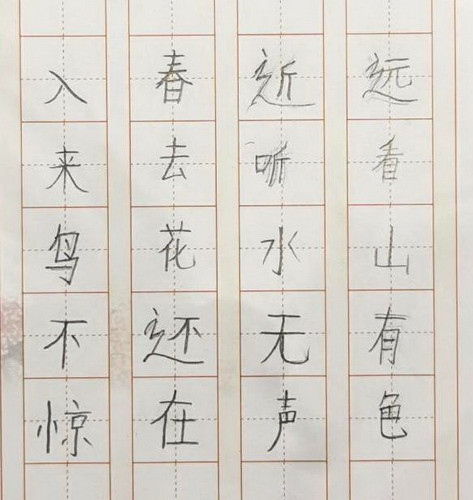 远看山有色
近听水无声
春去花还在
入来鸟不惊